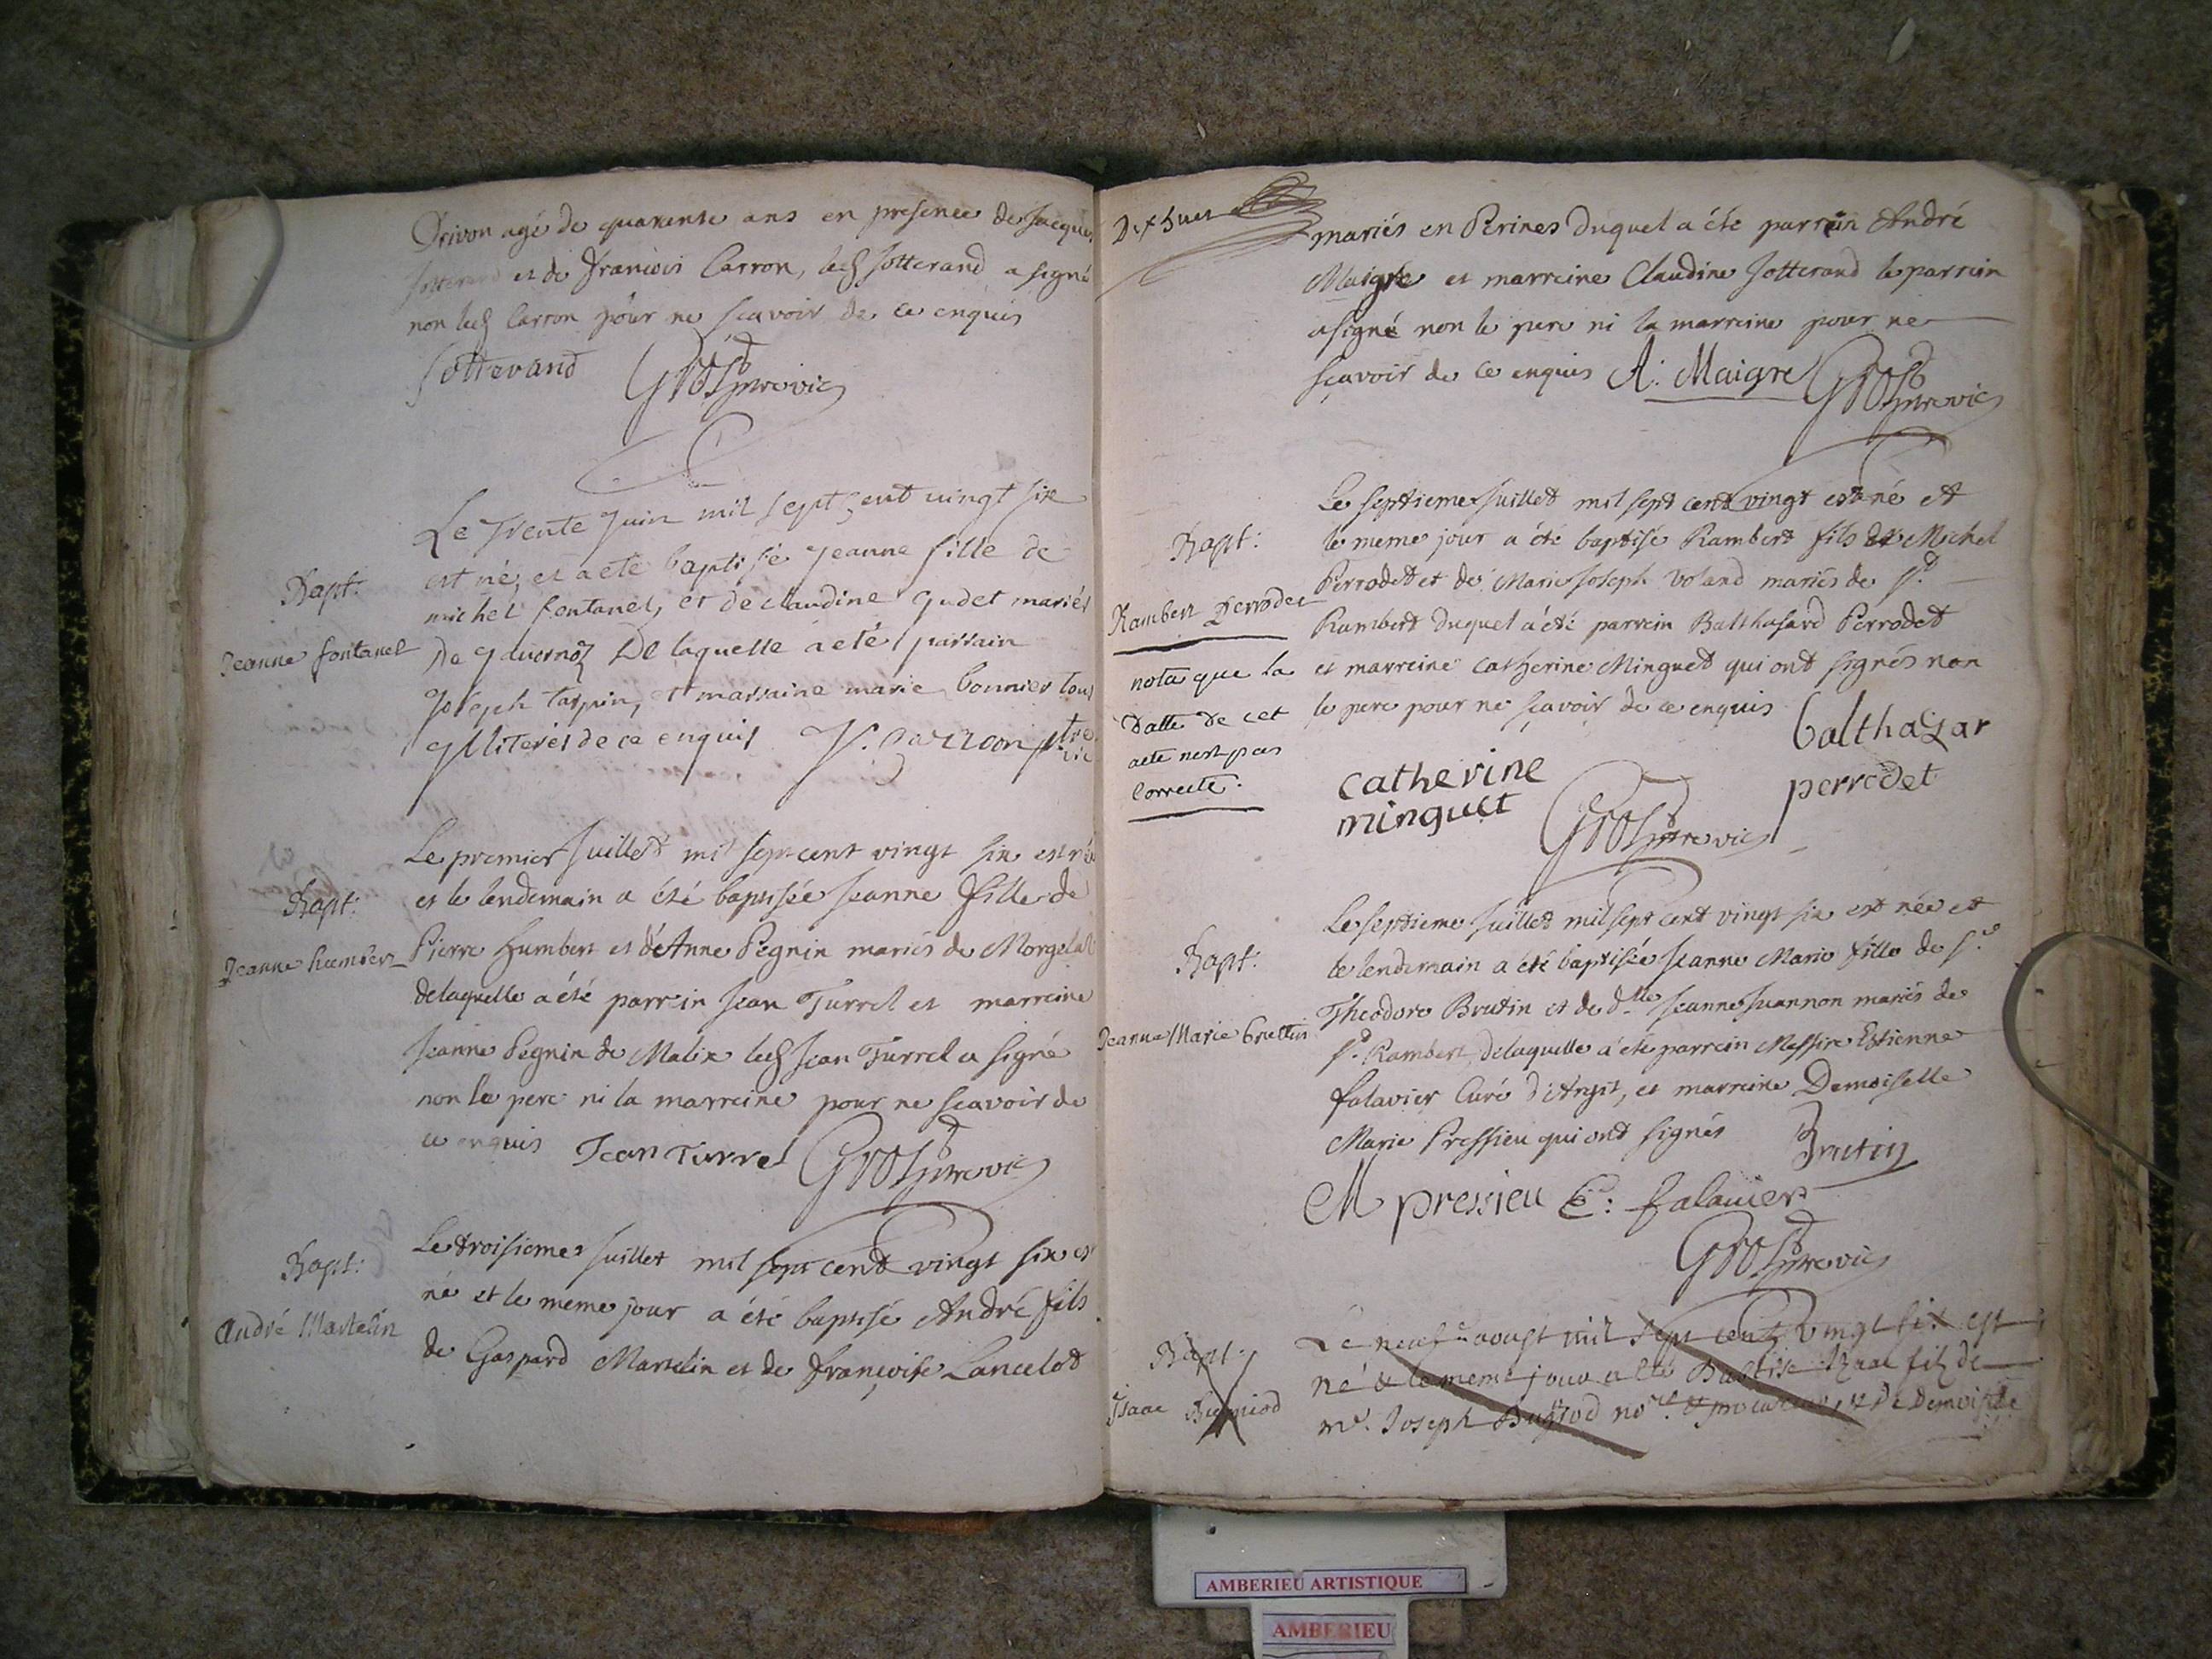 Drivon agé de quarente ans en presence de Jacques
Sotterand et de François Carron, led Sotterand a signé
non led Carron pour ne sçavoir de ce enquis
Sotterand Gros vic
Bapt:
Jeanne fontanel
Le Trente Juin mil sept cent vingt six
est né, et a eté baptisée jeanne fille de
michel fontanel, et de claudine gudet mariés
De laquelle a eté parrain
Joseph tarpin, et marraine marie bonnier tous
ylliterés de ce enquis
Bapt:
Jeanne humbert
Le premier Juillet mil sept cent vingt six est née
et le lendemain a été baptisée Jeanne fille de
Pierre Humbert et d'Anne Pegnin mariés de Morgelat
delaquelle a été parrein Jean Turrel et marreine
Jeanne Pegnin de Malix led Jean Turrel a signé
non le pere ni la marreine pour ne sçavoir de
ce enquis Jean Turrel Gros vic
Bapt:
André Martelin
Le troisieme Juillet mil sept cent vingt six est
né et le meme jour a été baptisé André fils
de Gaspard Martelin et de Françoise Lancelot
mariés en Perines duquel a été parrein André
Maigre et marreine Claudine Sotterand le parrein
a signé non le pere ni la marreine pour ne
sçavoir de ce enquis A. Maigre Gros vic
Bapt:
Rambert Perrodet
nota que la
datte de cet
acte nest pas
correcte.
Le septieme Juillet mil sept cent vingt est né et
le meme jour a été baptisé Rambert fils de Michel
Perrodet et de Marie Joseph Voland mariés de St
Rambert duquel a été parrein Balthasard Perrodet
et marreine Catherine Minguet qui ont signés non
le pere pour ne sçavoir de ce enquis
balthazar
perrodet
catherine
minguet
Gros vic
Bapt:
Jeanne Marie bruttin
Le septieme Juillet mil sept cent vingt six est née et
le lendemain a été baptisée Jeanne Marie fille de Sr
Theodore Brutin et de dlle Jeanne Juannon mariés de
St Rambert, delaquelle a été parrein Messire Estienne
falavier Curé d'Argit, et marreine Demoiselle
Marie Pressieu qui ont signés Brutin
M pressieu E: falavier
Gros vic
Bapt:
Isaac
Le neufe aoust mil sept cent vingt six est
né & le meme jour a eté Baptisé Isaac fils de
me. Joseph nore & procureur, & de Demoiselle
AMBERIEU ARTISTIQUE
AMBERIEU